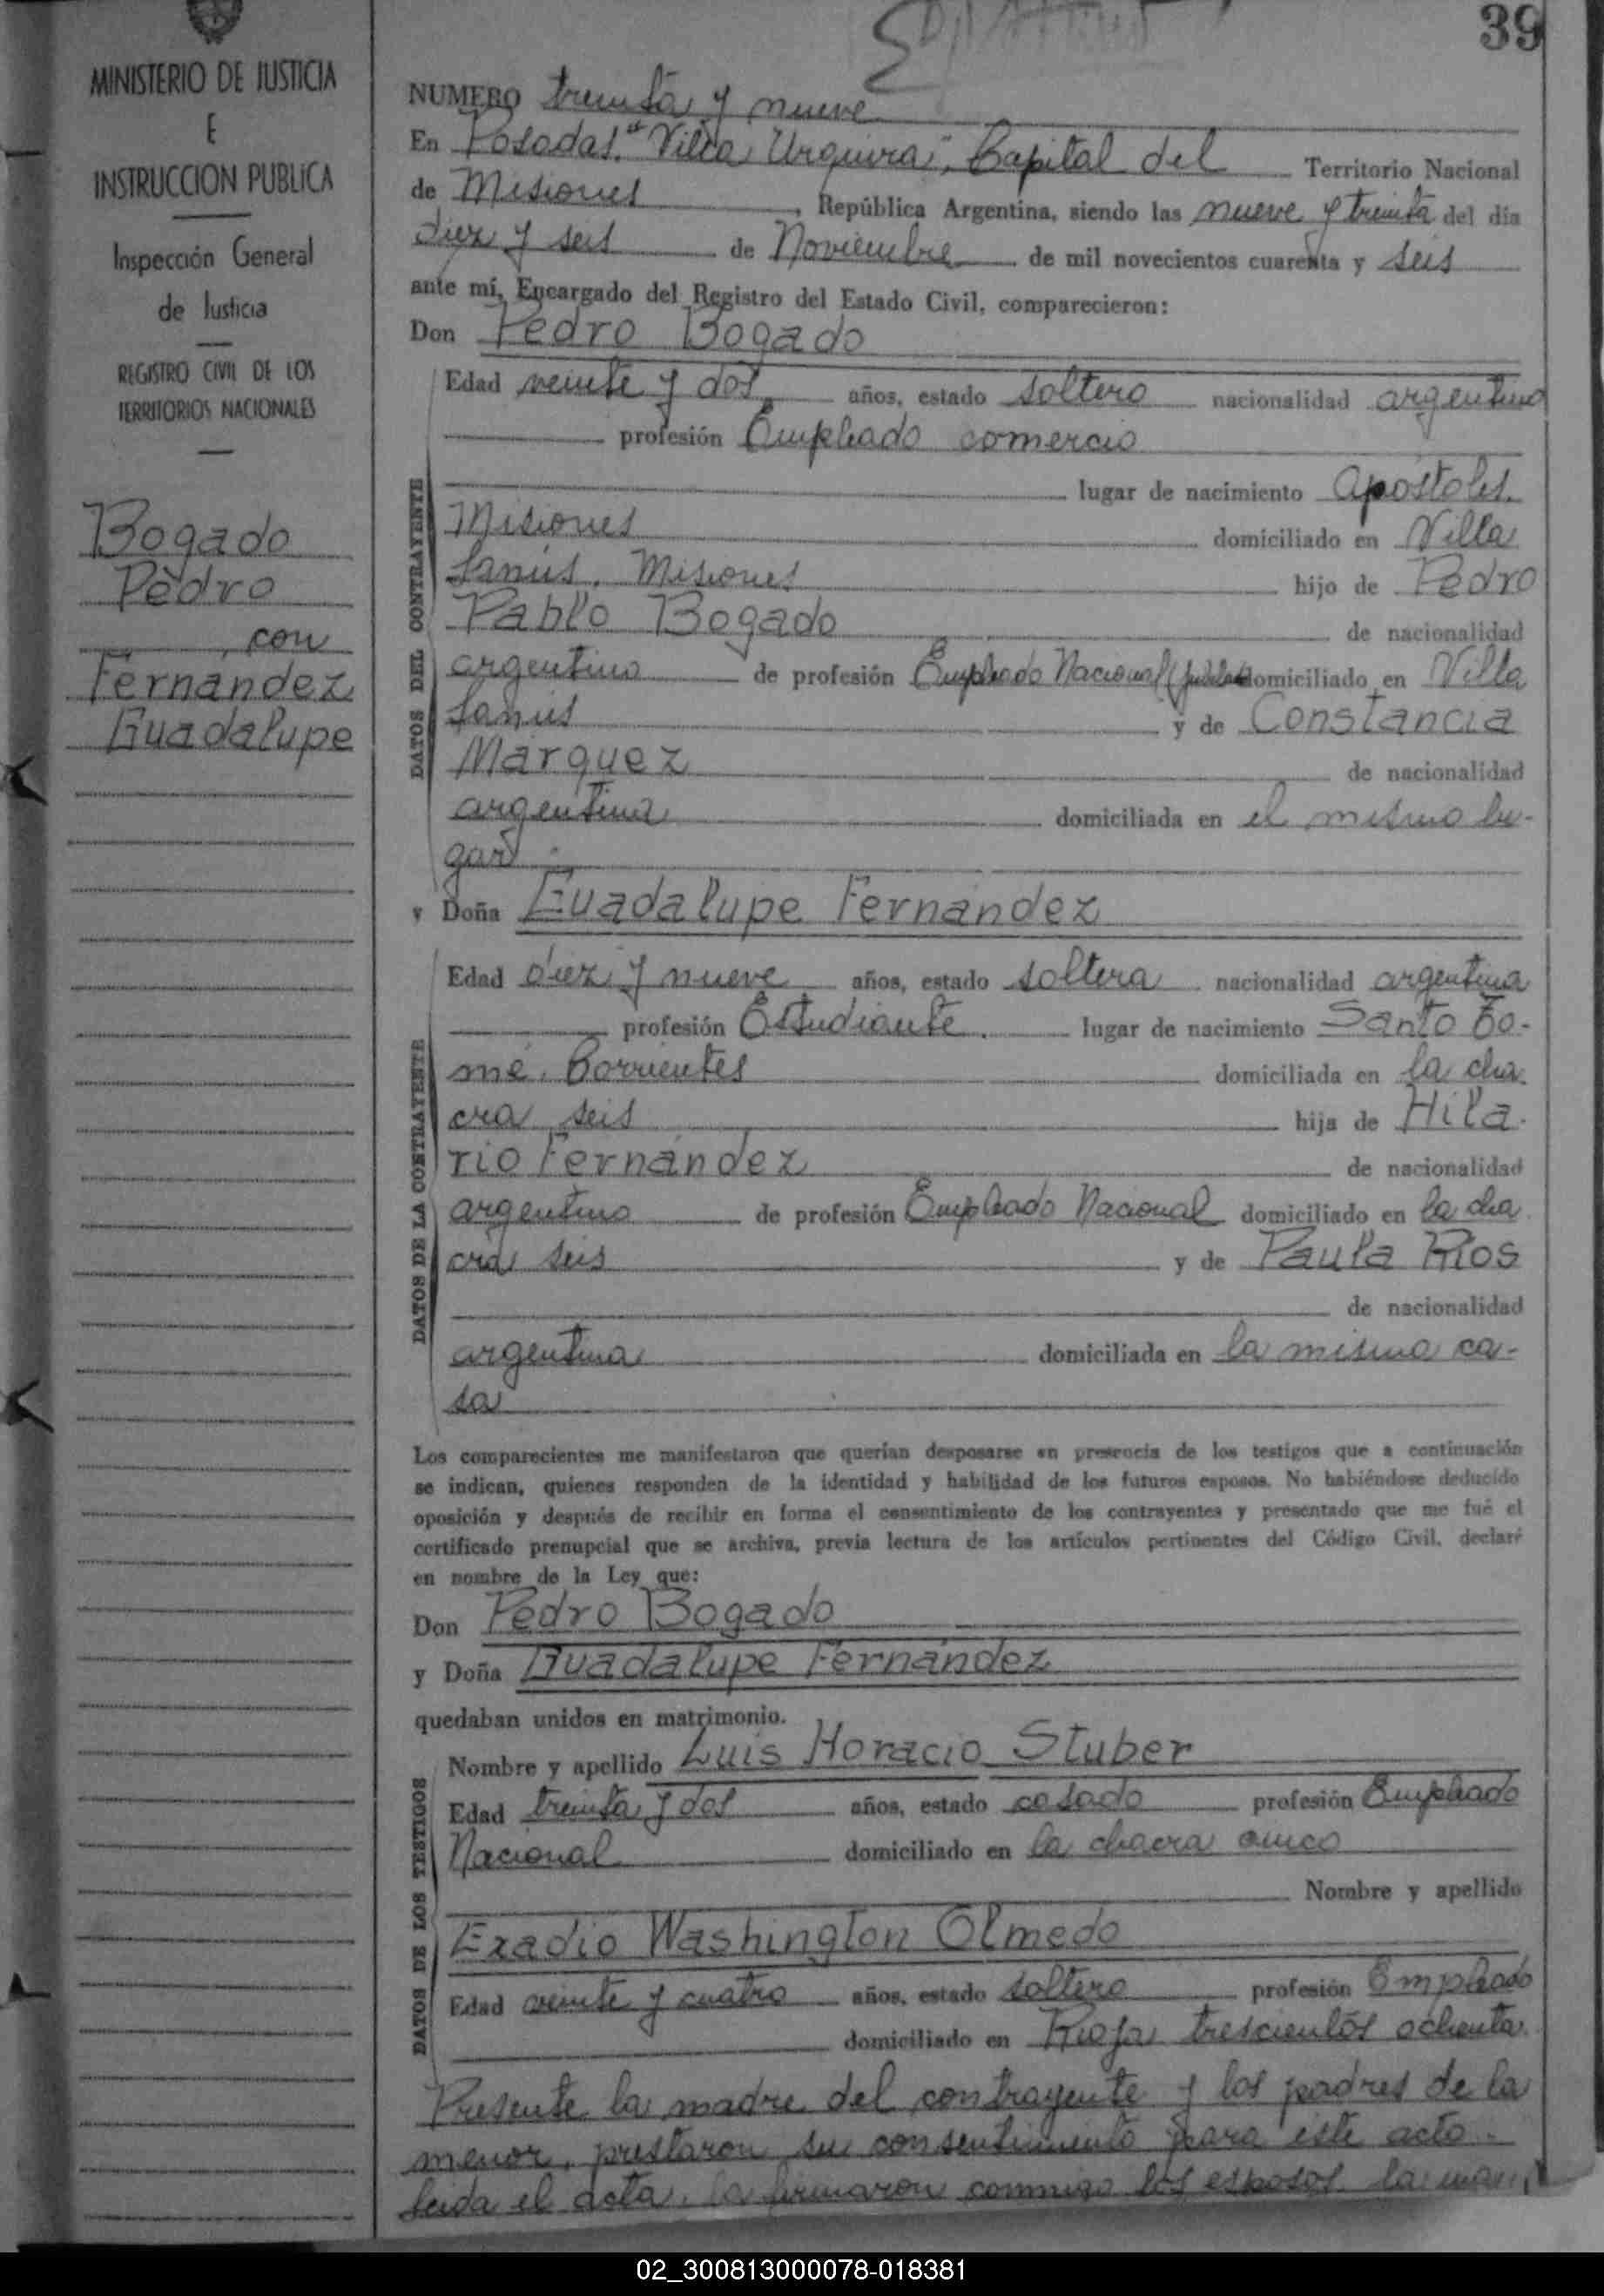 39
MINISTERIO DE JUSTICIA
E
INSTRUCCION PUBLICA
Inspección General
de Justicia
REGISTRO CIVIL DE LOS
TERRITORIOS NACIONALES
Bogado
Pedro
con
Fernández
Guadalupe
NUMERO treinta y nueve
En Posadas "Villa Urquiza", Capital del Territorio Nacional
de Misiones, República Argentina, siendo las nueve y treinta del día
diez y seis de Noviembre de mil novecientos cuarenta y seis
ante mí, Encargado del Registro del Estado Civil, comparecieron:
Don Pedro Bogado
DATOS DEL CONTRAYENTE
Edad veinte y dos años, estado soltero nacionalidad argentino
profesión Empleado comercio
lugar de nacimiento Apóstoles.
Misiones domiciliado en Villa
Lanús. Misiones hijo de Pedro
Pablo Bogado de nacionalidad
argentino de profesión Empleado Nacional domiciliado en Villa
Lanús y de Constancia
Márquez de nacionalidad
argentina domiciliada en el mismo lu-
gar
y Doña Guadalupe Fernández
DATOS DE LA CONTRAYENTE
Edad diez y nueve años, estado soltera nacionalidad argentina
profesión Estudiante. lugar de nacimiento Santo To-
mé. Corrientes domiciliada en la cha-
cra seis hija de Hila-
rio Fernández de nacionalidad
argentino de profesión Empleado Nacional domiciliado en la cha-
cra seis y de Paula Ríos
de nacionalidad
argentina domiciliada en la misma ca-
sa
Los comparecientes me manifestaron que querían desposarse en presencia de los testigos que a continuación
se indican, quienes responden de la identidad y habilidad de los futuros esposos. No habiéndose deducido
oposición y después de recibir en forma el consentimiento de los contrayentes y presentado que me fué el
certificado prenupcial que se archiva, previa lectura de los artículos pertinentes del Código Civil, declaré
en nombre de la Ley que:
Don Pedro Bogado
y Doña Guadalupe Fernández
quedaban unidos en matrimonio.
DATOS DE LOS TESTIGOS
Nombre y apellido Luis Horacio Stuber
Edad treinta y dos años, estado casado profesión Empleado
Nacional domiciliado en la chacra cinco
Nombre y apellido
Eradio Washington Olmedo
Edad veinte y cuatro años, estado soltero profesión Empleado
domiciliado en Rioja trescientos ochenta.
Presente la madre del contrayente y los padres de la
menor, prestaron su consentimiento para este acto.
Leida el acta, la firmaron conmigo los esposos, la
02_300813000078-018381